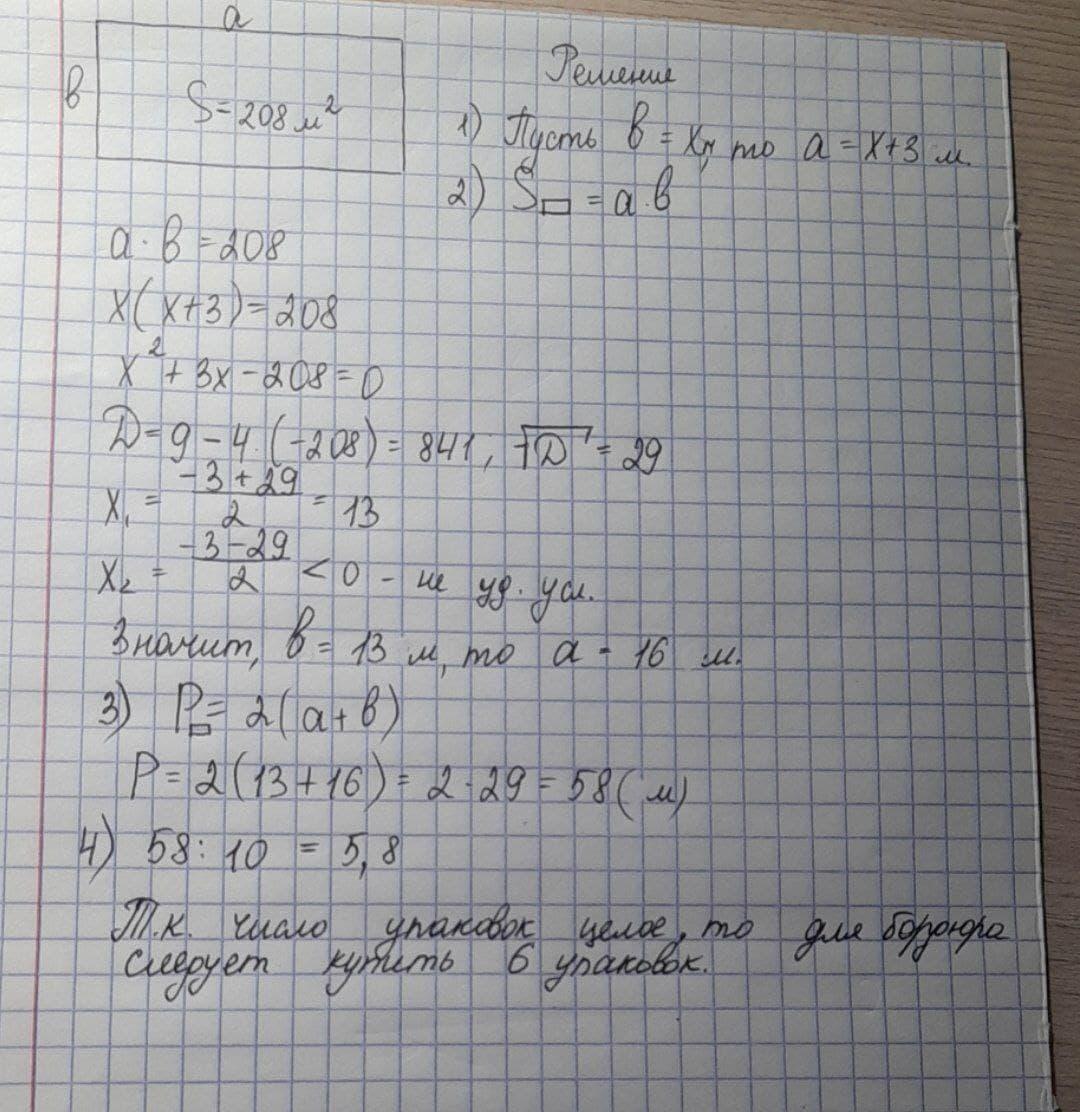 a
в
S = 208 м²
Решение
1) Пусть в = х м, то а = х+3 м.
2) S▭ = а·в
а·в = 208
х(х+3) = 208
х² + 3х - 208 = 0
D = 9 - 4·(-208) = 841, √D = 29
х₁ = (-3 + 29)/2 = 13
х₂ = (-3 - 29)/2 < 0 - не уд. усл.
Значит, в = 13 м, то а - 16 м.
3) P▭ = 2(а+в)
P = 2(13+16) = 2·29 = 58 (м)
4) 58 : 10 = 5,8
Т.к. число упаковок целое, то для бордюра
следует купить 6 упаковок.